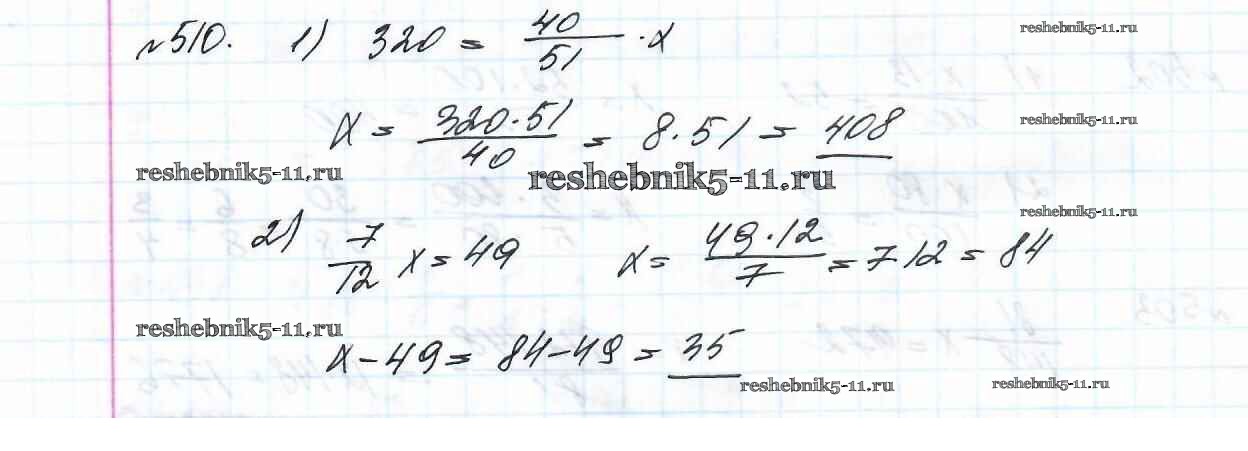 №510. 1) 320 = 40/51 · x
reshebnik5-11.ru
x = 320·51/40 = 8·51 = 408
reshebnik5-11.ru
reshebnik5-11.ru
reshebnik5-11.ru
reshebnik5-11.ru
2) 7/12 x = 49 x = 49·12/7 = 7 12 = 84
reshebnik5-11.ru
x - 49 = 84 - 49 = 35
reshebnik5-11.ru
reshebnik5-11.ru